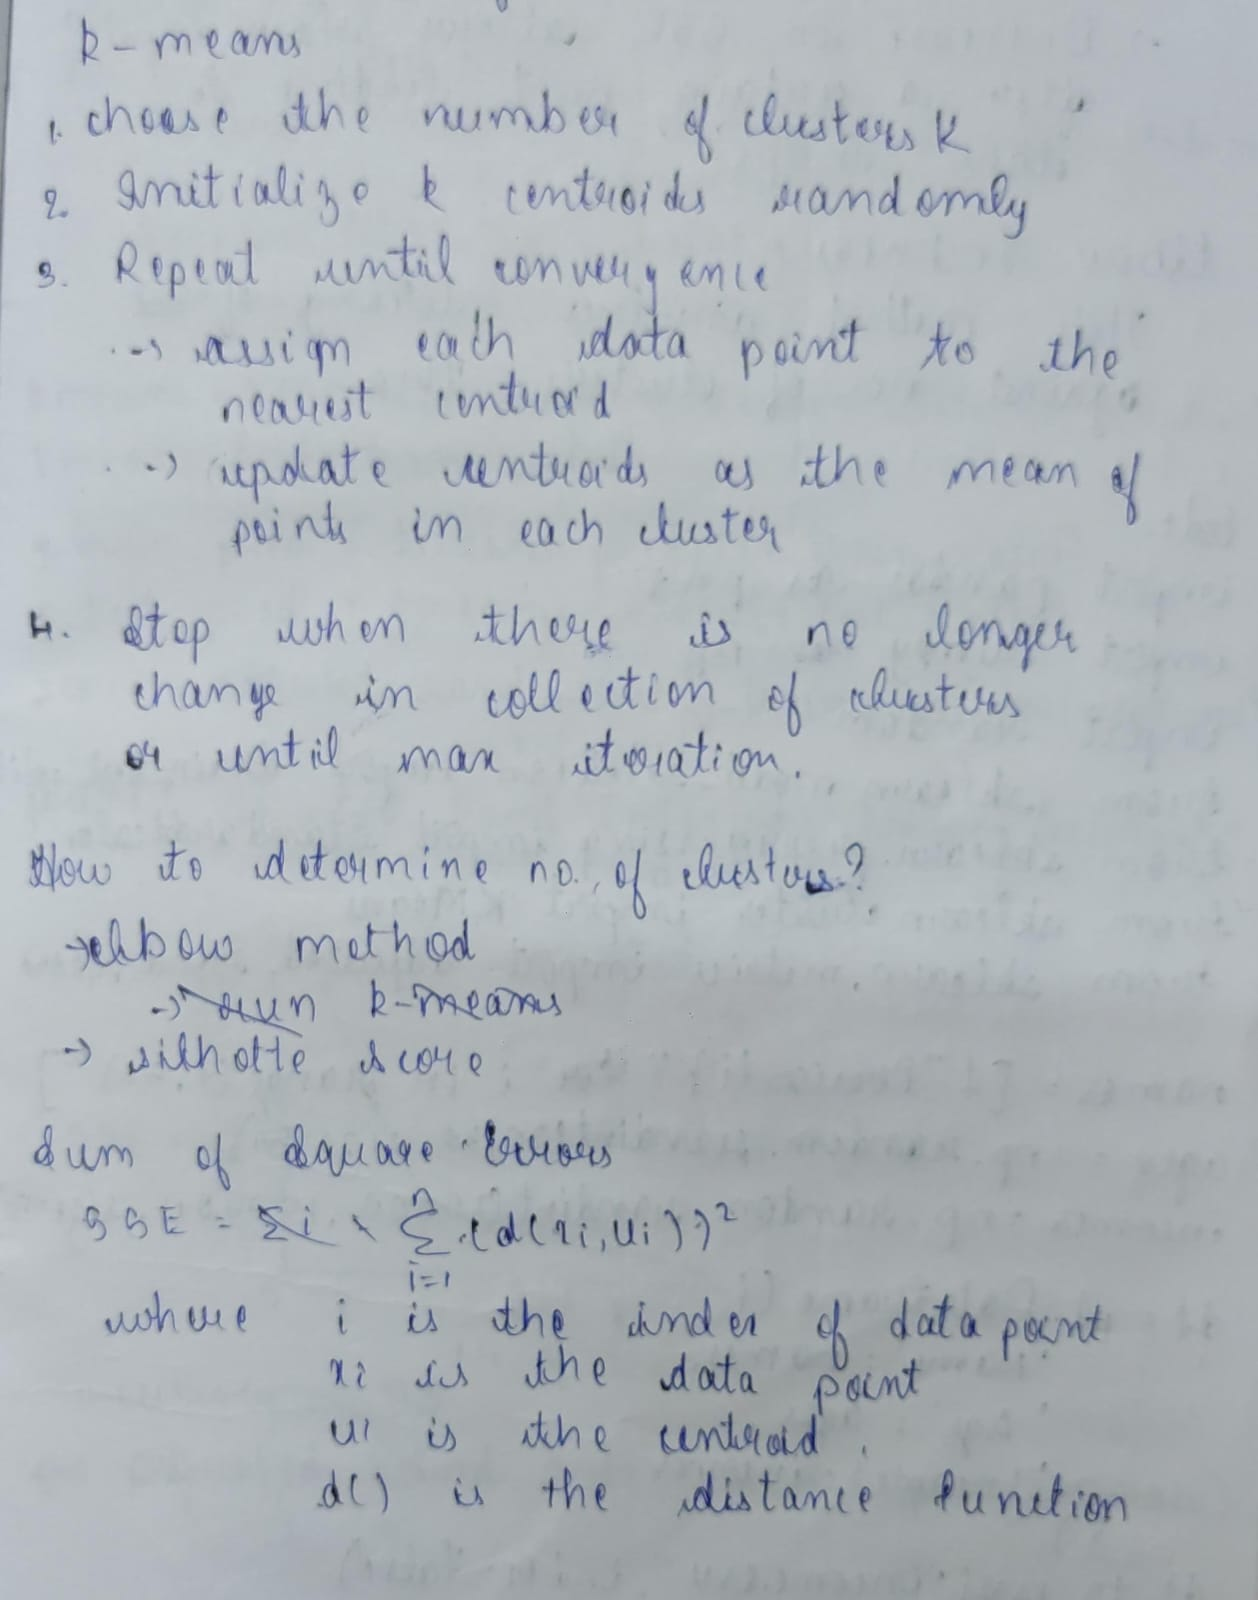 k-means
1. choose the number of clusters K
2. Initialize k centroids randomly
3. Repeat until convergence
-> assign each data point to the
nearest centroid
-> update centroids as the mean of
points in each cluster
4. Stop when there is no longer
change in collection of clusters
or until max iteration.
How to determine no. of clusters?
-> elbow method
-> run k-means
-> silhotte score
Sum of Square Errors
SSE = Σi Σ (d(xi, ui))²
n
i=1
where i is the index of data point
xi is the data point
ui is the centroid.
d() is the distance function